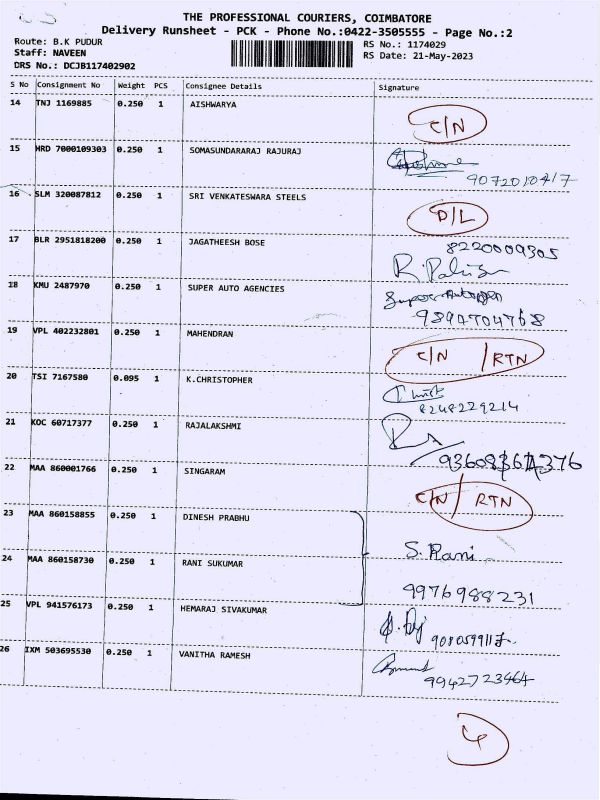 THE PROFESSIONAL COURIERS, COIMBATORE
Delivery Runsheet - PCK - Phone No.:0422-3505555 - Page No.:2
Route: B.K PUDUR
RS No.: 1174029
Staff: NAVEEN
RS Date: 21-May-2023
DRS No.: DCJB117402902
S No Consignment No Weight PCS Consignee Details Signature
14 TNJ 1169885 0.250 1 AISHWARYA
C/N
15 HRD 7000109303 0.250 1 SOMASUNDARARAJ RAJURAJ
9072010417
16 SLM 320087812 0.250 1 SRI VENKATESWARA STEELS
D/L
17 BLR 2951818200 0.250 1 JAGATHEESH BOSE
8220009305
18 KMU 2487970 0.250 1 SUPER AUTO AGENCIES
Super
9894704768
19 VPL 402232801 0.250 1 MAHENDRAN
C/N / RTN
20 TSI 7167580 0.095 1 K.CHRISTOPHER
8248229214
21 KOC 60717377 0.250 1 RAJALAKSHMI
22 MAA 860001766 0.250 1 SINGARAM
C/N / RTN
23 MAA 860158855 0.250 1 DINESH PRABHU
S. Rani
24 MAA 860158730 0.250 1 RANI SUKUMAR
9976988231
25 VPL 941576173 0.250 1 HEMARAJ SIVAKUMAR
26 IXM 503695530 0.250 1 VANITHA RAMESH
9942723464
4